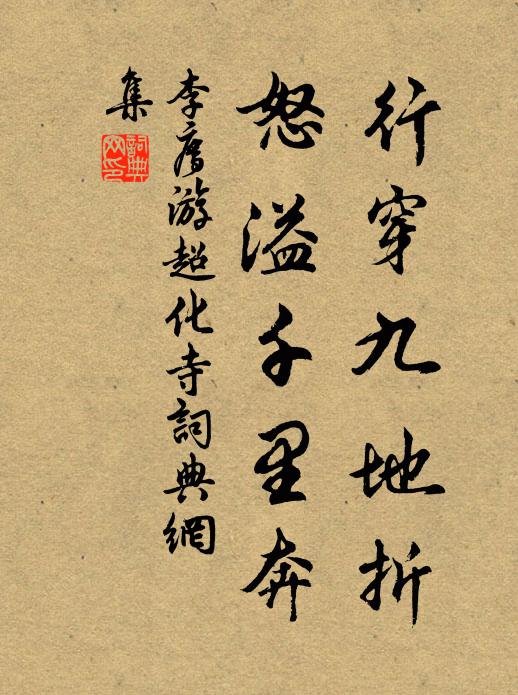 行穿九地折
怒溢千里奔
李廌游超化寺詞典網
集
詞典
网印